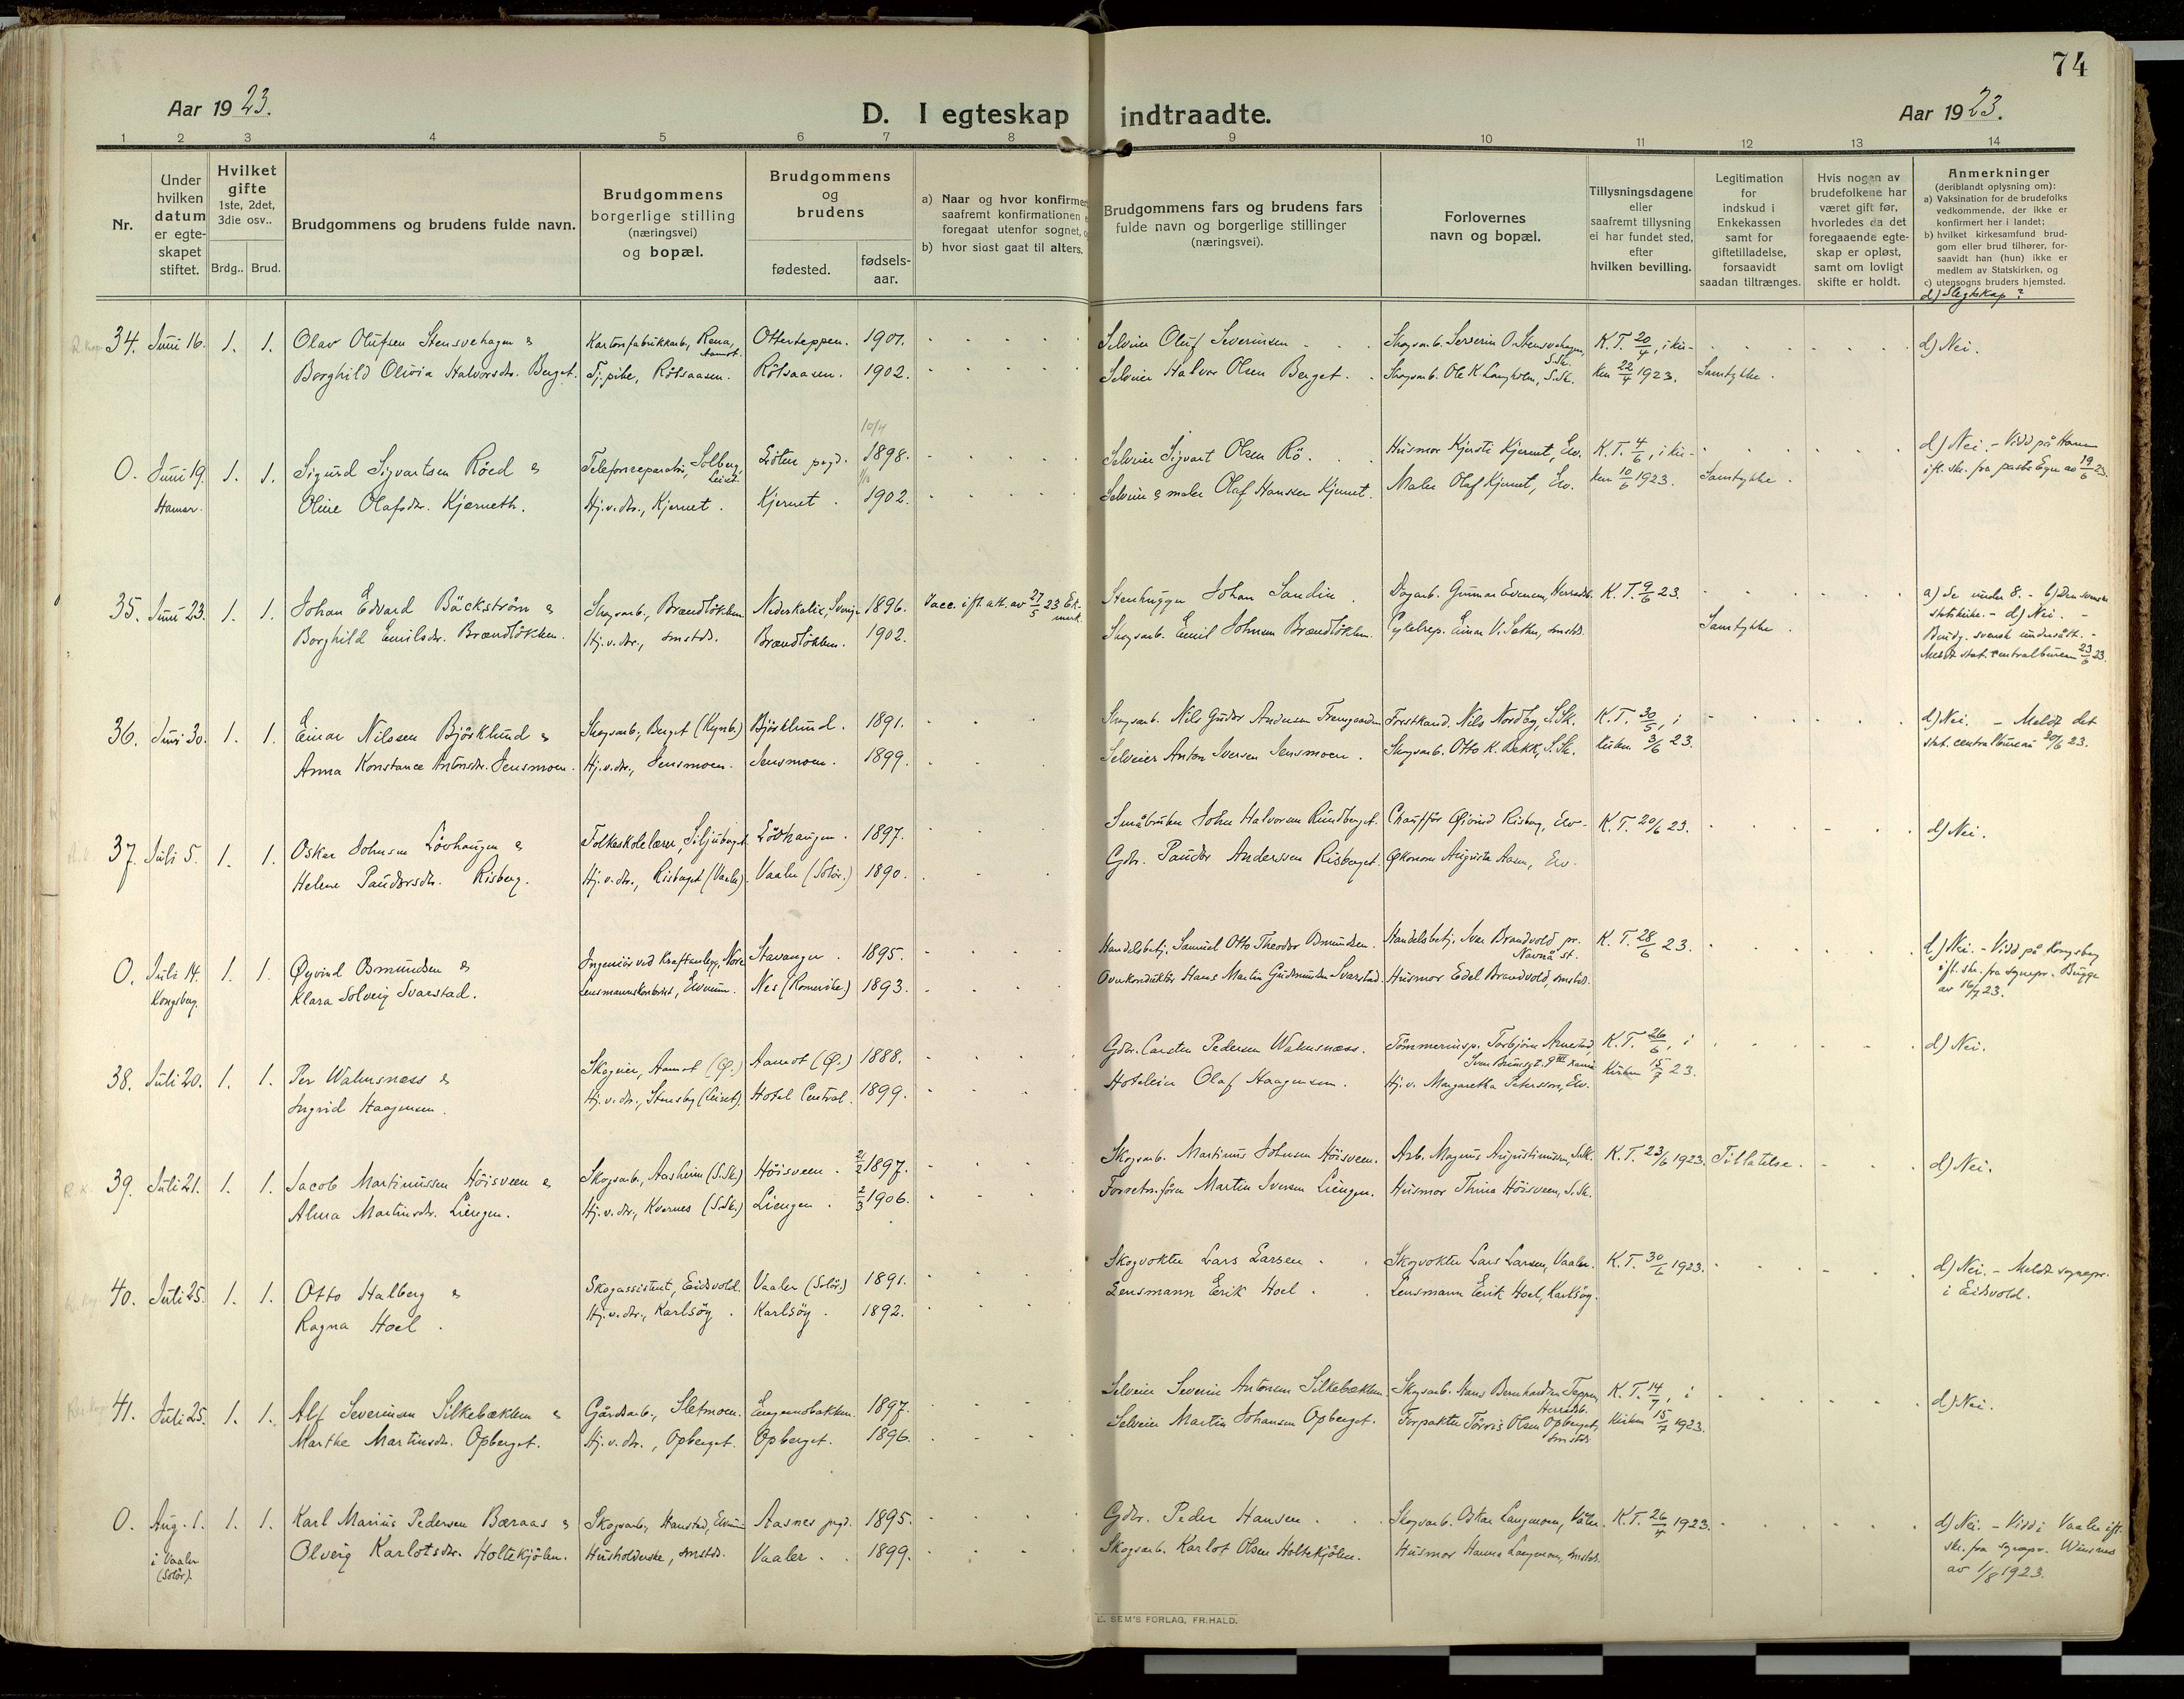 74
Aar 1923.
D. I egteskap indtraadte.
Aar 1923.
1 2 3 4 5 6 7 8 9 10 11 12 13 14
Nr.
Under hvilken datum er egte-skapet stiftet.
Hvilket gifte 1ste, 2det, 3die osv..
Brdg.. Brud.
Brudgommens og brudens fulde navn.
Brudgommens borgerlige stilling (næringsvei) og bopæl.
Brudgommens og brudens
fødested.
fødsels-aar.
a) Naar og hvor konfirme
saafremt konfirmationen
foregaat utenfor sognet,
b) hvor sidst gaat til alters.
Brudgommens fars og brudens fars fulde navn og borgerlige stillinger (næringsvei).
Forlovernes navn og bopæl.
Tillysningsdagene eller saafremt tillysning ei har fundet sted, efter hvilken bevilling.
Legitimation for indskud i Enkekassen samt for giftetilladelse, forsaavidt saadan tiltrænges.
Hvis nogen av brudefolkene har været gift før, hvorledes da det foregaaende egte-skap er opløst, samt om lovligt skifte er holdt.
Anmerkninger
(deriblandt oplysning om):
a) Vaksination for de brudefolks vedkommende, der ikke er konfirmert her i landet;
b) hvilket kirkesamfund brud-gom eller brud tilhører, for-saavidt han (hun) ikke er medlem av Statskirken, og
c) utensogns bruders hjemsted.
d) Slegtskap?
34. Juni 16. 1. 1. Olav Olufsen Stensvehagen & Kartonfabrikkarb., Rena, Aamot. Otterteppen. 1901. Selveier Oluf Severinsen Skogsarb. Severin O. Stensvehagen, S.Sk. K.T. 20/4, i kir- d) Nei.
Borghild Olivia Halvorsdr. Berget. Tj.pike, Rötsaasen. Rötsaasen. 1902. Selveier Halvor Olsen Berget. Skogsarb. Ole K. Langholm, S.Sk. ken 22/4 1923. Samtykke.
10/4
0. Juni 19. 1. 1. Sigurd Sigvartsen Röed & Telefonreparatør, Solberg, Leiret. Löten prgd. 1898. Selveier Sigvart Olsen Rö. Husmor Kjersti Kjernet, Elv. K.T. 4/6, i kir- d) Nei. - Vidd på Hamar
Hamar. Oline Olafsdr. Kjerneth. Hj.v.dtr., Kjernet. Kjernet. 1902. Selveier & maler Olaf Hansen Kjernet. Maler Olaf Kjernet, Elv. ken 10/6 1923. Samtykke. ifl. skr. fra av 19/6 23.
35. Juni 23. 1. 1. Johan Edvard Bäckström & Skogsarb., Brændlökken. Nederkalix, Sverige 1896. Vacc. ifl. att. av 27/5 23 Stenhugger Johan Sandin Dagarb. Gunnar Evensen, Herredsb. K.T. 9/6 23. a) Se under 8. - b) Den svenske
Borghild Emilsdr. Brændlökken. Hj.v.dtr., smstds. Brændlökken. 1902. Skogsarb. Emil Johnsen Brændlökken. Cykelrep. Einar V. Sæther, smstds. Samtykke. statskirke. - d) Nei. -
Brudg. svensk undersått. -
Meldt stat. centralbureau 23/6 23.
36. Juni 30. 1. 1. Einar Nilssen Björklund & Skogsarb., Berget (Kynb.) Björklund. 1891. Skogsarb. Nils Gudor Andersen Forstkand. Nils Nordby, S.Sk. K.T. 30/5, i d) Nei. - Meldt det
Anna Konstance Antonsdr. Jensmoen. Hj.v.dtr., Jensmoen. Jensmoen. 1899. Selveier Anton Iversen Jensmoen. Skogsarb. Otto K. Bekk, S.Sk. kirken 3/6 23. stat. centralbureau 30/6 23.
37. Juli 5. 1. 1. Oskar Johnsen Lövhaugen & Folkeskolelærer, Siljuberget Lövhaugen. 1897. Småbruker John Halvorsen Rundberget. Chauffør Øivind Risberg, Elv. K.T. 20/6 23. d) Nei.
Helene Paudorsdr. Risberg. Hj.v.dtr., Risberget (Vaaler). Vaaler (Solør.) 1890. Gdbr. Paudor Anderssen Risberget. Økonom Augusta Aasen, Elv.
0. Juli 14. 1. 1. Øyvind Osmundsen & Ingeniør ved Kraftanlegg, Nore Stavanger. 1895. Handelsbetj. Samuel Otto Theodor Osmundsen. Handelsbetj. Ivar Brandvold pr. Navnå st. K.T. 28/6 23. d) Nei - Vidd på Kongsberg
Kongsberg. Klara Solveig Svarstad. Lensmannskontorist, Elverum. Nes (Romerike) 1893. Overkonduktör Hans Martin Gudmundsen Svarstad. Husmor Edel Brandvold, smstds. ifl. skr. fra sognepr. Bugge av 16/7 23.
38. Juli 20. 1. 1. Per Walmsness & Skogeier, Aamot (Ø.) Aamot (Ø.) 1888. Gdbr. Carsten Pedersen Walmsness. Tömmerinsp. Torbjörn Arnestad, K.T. 26/6, i d) Nei.
Ingrid Haagensen. Hj.v.dtr., Stensby (Leiret). Hotel Central. 1899. Hoteleier Olaf Haagensen. Hj.v. Margaretha Petersson, Elv. kirken 15/7 23.
39. Juli 21. 1. 1. Jacob Martinussen Höisveen & Skogsarb., Aasheim (S.Sk.) Höisveen. 21/2 1897. Skogsarb. Martinus Johnsen Höisveen. Arb. Magnus Augustinussen, S.Sk. K.T. 23/6 1923. Tillatelse. d) Nei.
Alma Martinsdr. Liengen. Hj.v.dtr., Kvernes (S.Sk.) Liengen. 2/3 1906. Martin Iversen Liengen. Husmor Thina Höisveen, S.Sk.
40. Juli 25. 1. 1. Otto Halberg & Skogassistent, Eidsvold. Vaaler (Solör.) 1891. Skogvokter Lars Larsen Skogvokter Lars Larsen, Vaaler. K.T. 30/6 1923. d) Nei. - Meldt sognepr.
Ragna Hoel. Hj.v.dtr., Karlsöy. Karlsöy. 1892. Lensmann Erik Hoel. Lensmann Erik Hoel, Karlsöy. i Eidsvold.
41. Juli 25. 1. 1. Alf Severinsen Silkebækken & Gårdsarb., Sletmoen. Engenesbakken. 1897. Selveier Severin Antonsen Silkebækken Skogsarb. Hans Bernhardsen Teppen, Herredsb. K.T. 14/7, i d) Nei.
Marthe Martinsdr. Opberget. Hj.v.dtr., Opberget. Opberget. 1896. Selveier Martin Johansen Opberget. Forpakter Törris Olsen Opberget, smstds. kirken 15/7 1923.
0. Aug. 1. 1. 1. Karl Marius Pedersen Bæraas & Skogsarb., Hanstad, Elverum Aasnes prgd. 1895. Gdbr. Peder Hansen. Skogsarb. Oskar Langmoen, Våler. K.T. 26/4 1923. d) Nei. - Vidd i Vaaler ifl.
i Vaaler (Solör). Olverig Karlotsdr. Holtekjölen. Husholderske, smstds. Vaaler. 1899. Skogsarb. Karlot Olsen Holtekjölen. Husmor Hanna Langmoen, smstds. skr. fra sognepr. Winsnes
av 1/8 1923.
E. SEM'S FORLAG, FR.HALD.